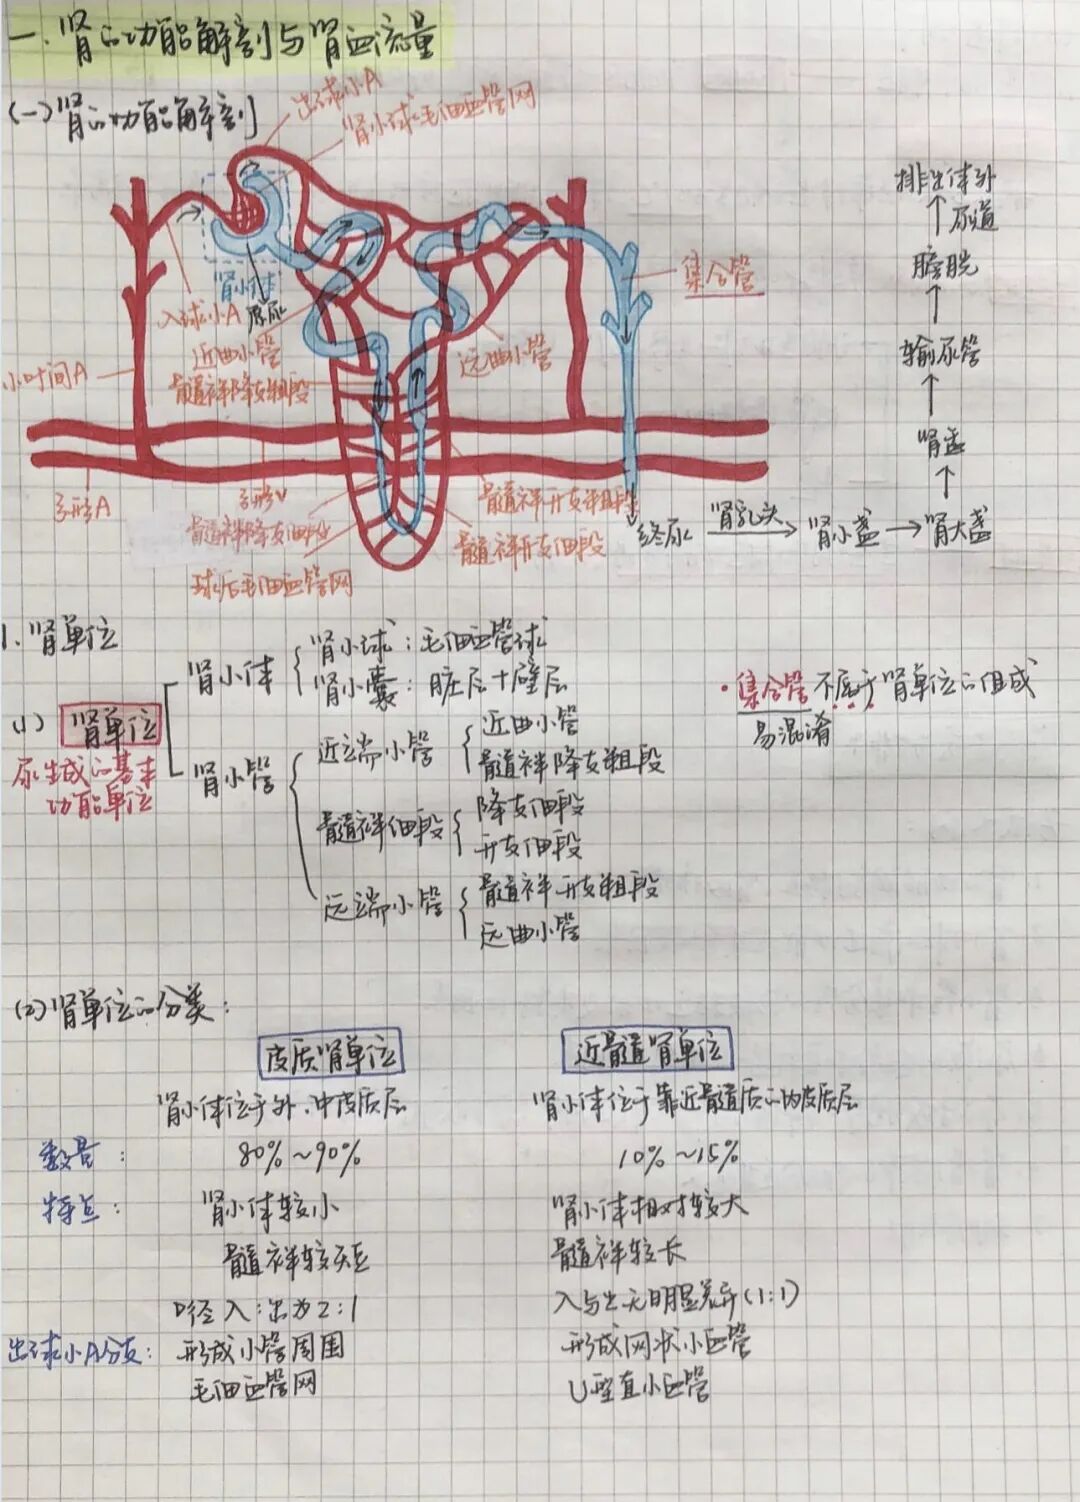 一.肾的功能解剖与肾血流量
(一)肾的功能解剖
出球小A
肾小球毛细血管网
肾小体
入球小A
原尿
近曲小管
髓袢降支粗段
小叶间A
远曲小管
集合管
弓形A
弓形V
髓袢降支细段
球后毛细血管网
髓袢升支粗段
髓袢升支细段
终尿
肾乳头
肾小盏
肾大盏
肾盂
输尿管
膀胱
尿道
排出体外
1.肾单位
(1)肾单位
尿生成的基本
功能单位
肾小体
肾小球:毛细血管球
肾小囊:脏层+壁层
肾小管
近端小管
近曲小管
髓袢降支粗段
髓袢细段
降支细段
升支细段
远端小管
髓袢升支粗段
远曲小管
·集合管不属于肾单位的组成
易混淆
(2)肾单位的分类:
皮质肾单位 近髓肾单位
肾小体位于外、中皮质层 肾小体位于靠近髓质的内皮质层
数量: 80%~90% 10%~15%
特点: 肾小体较小 肾小体相对较大
髓袢较短 髓袢较长
口径入:出为2:1 入与出无明显差异(1:1)
出球小A分支: 形成小管周围 形成网状小血管
毛细血管网 U型直小血管